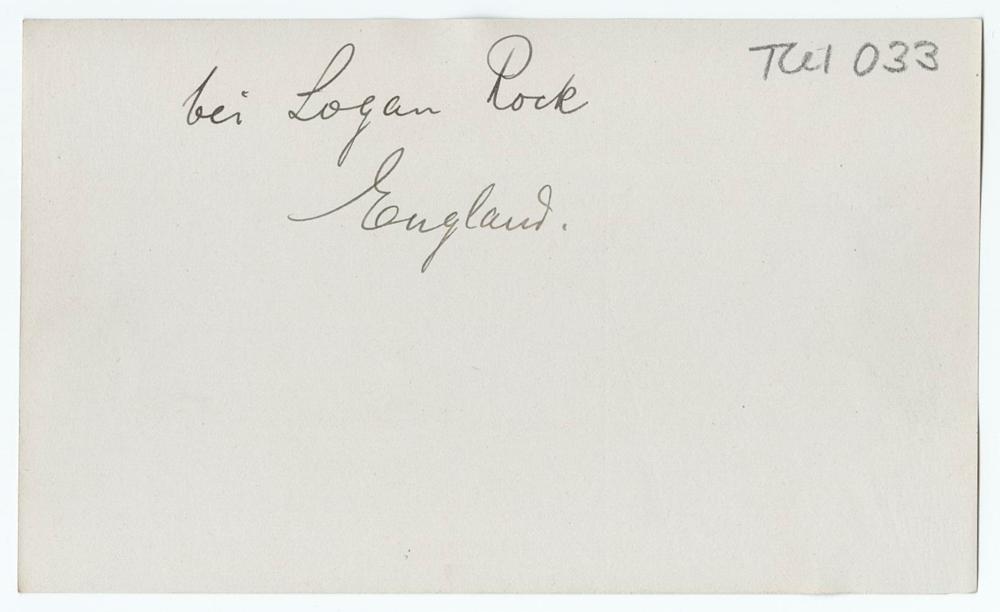 033
bei Logan Rock
England.